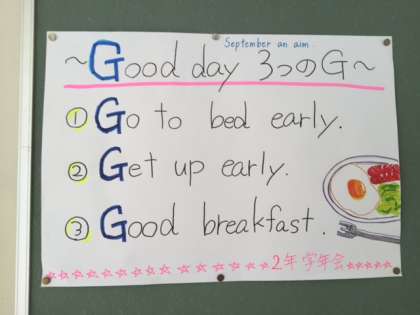 September an aim
～Good day 3つのG～
① Go to bed early.
② Get up early.
③ Good breakfast.
☆☆☆☆☆☆☆☆☆☆☆☆☆☆2年学年会☆☆☆☆